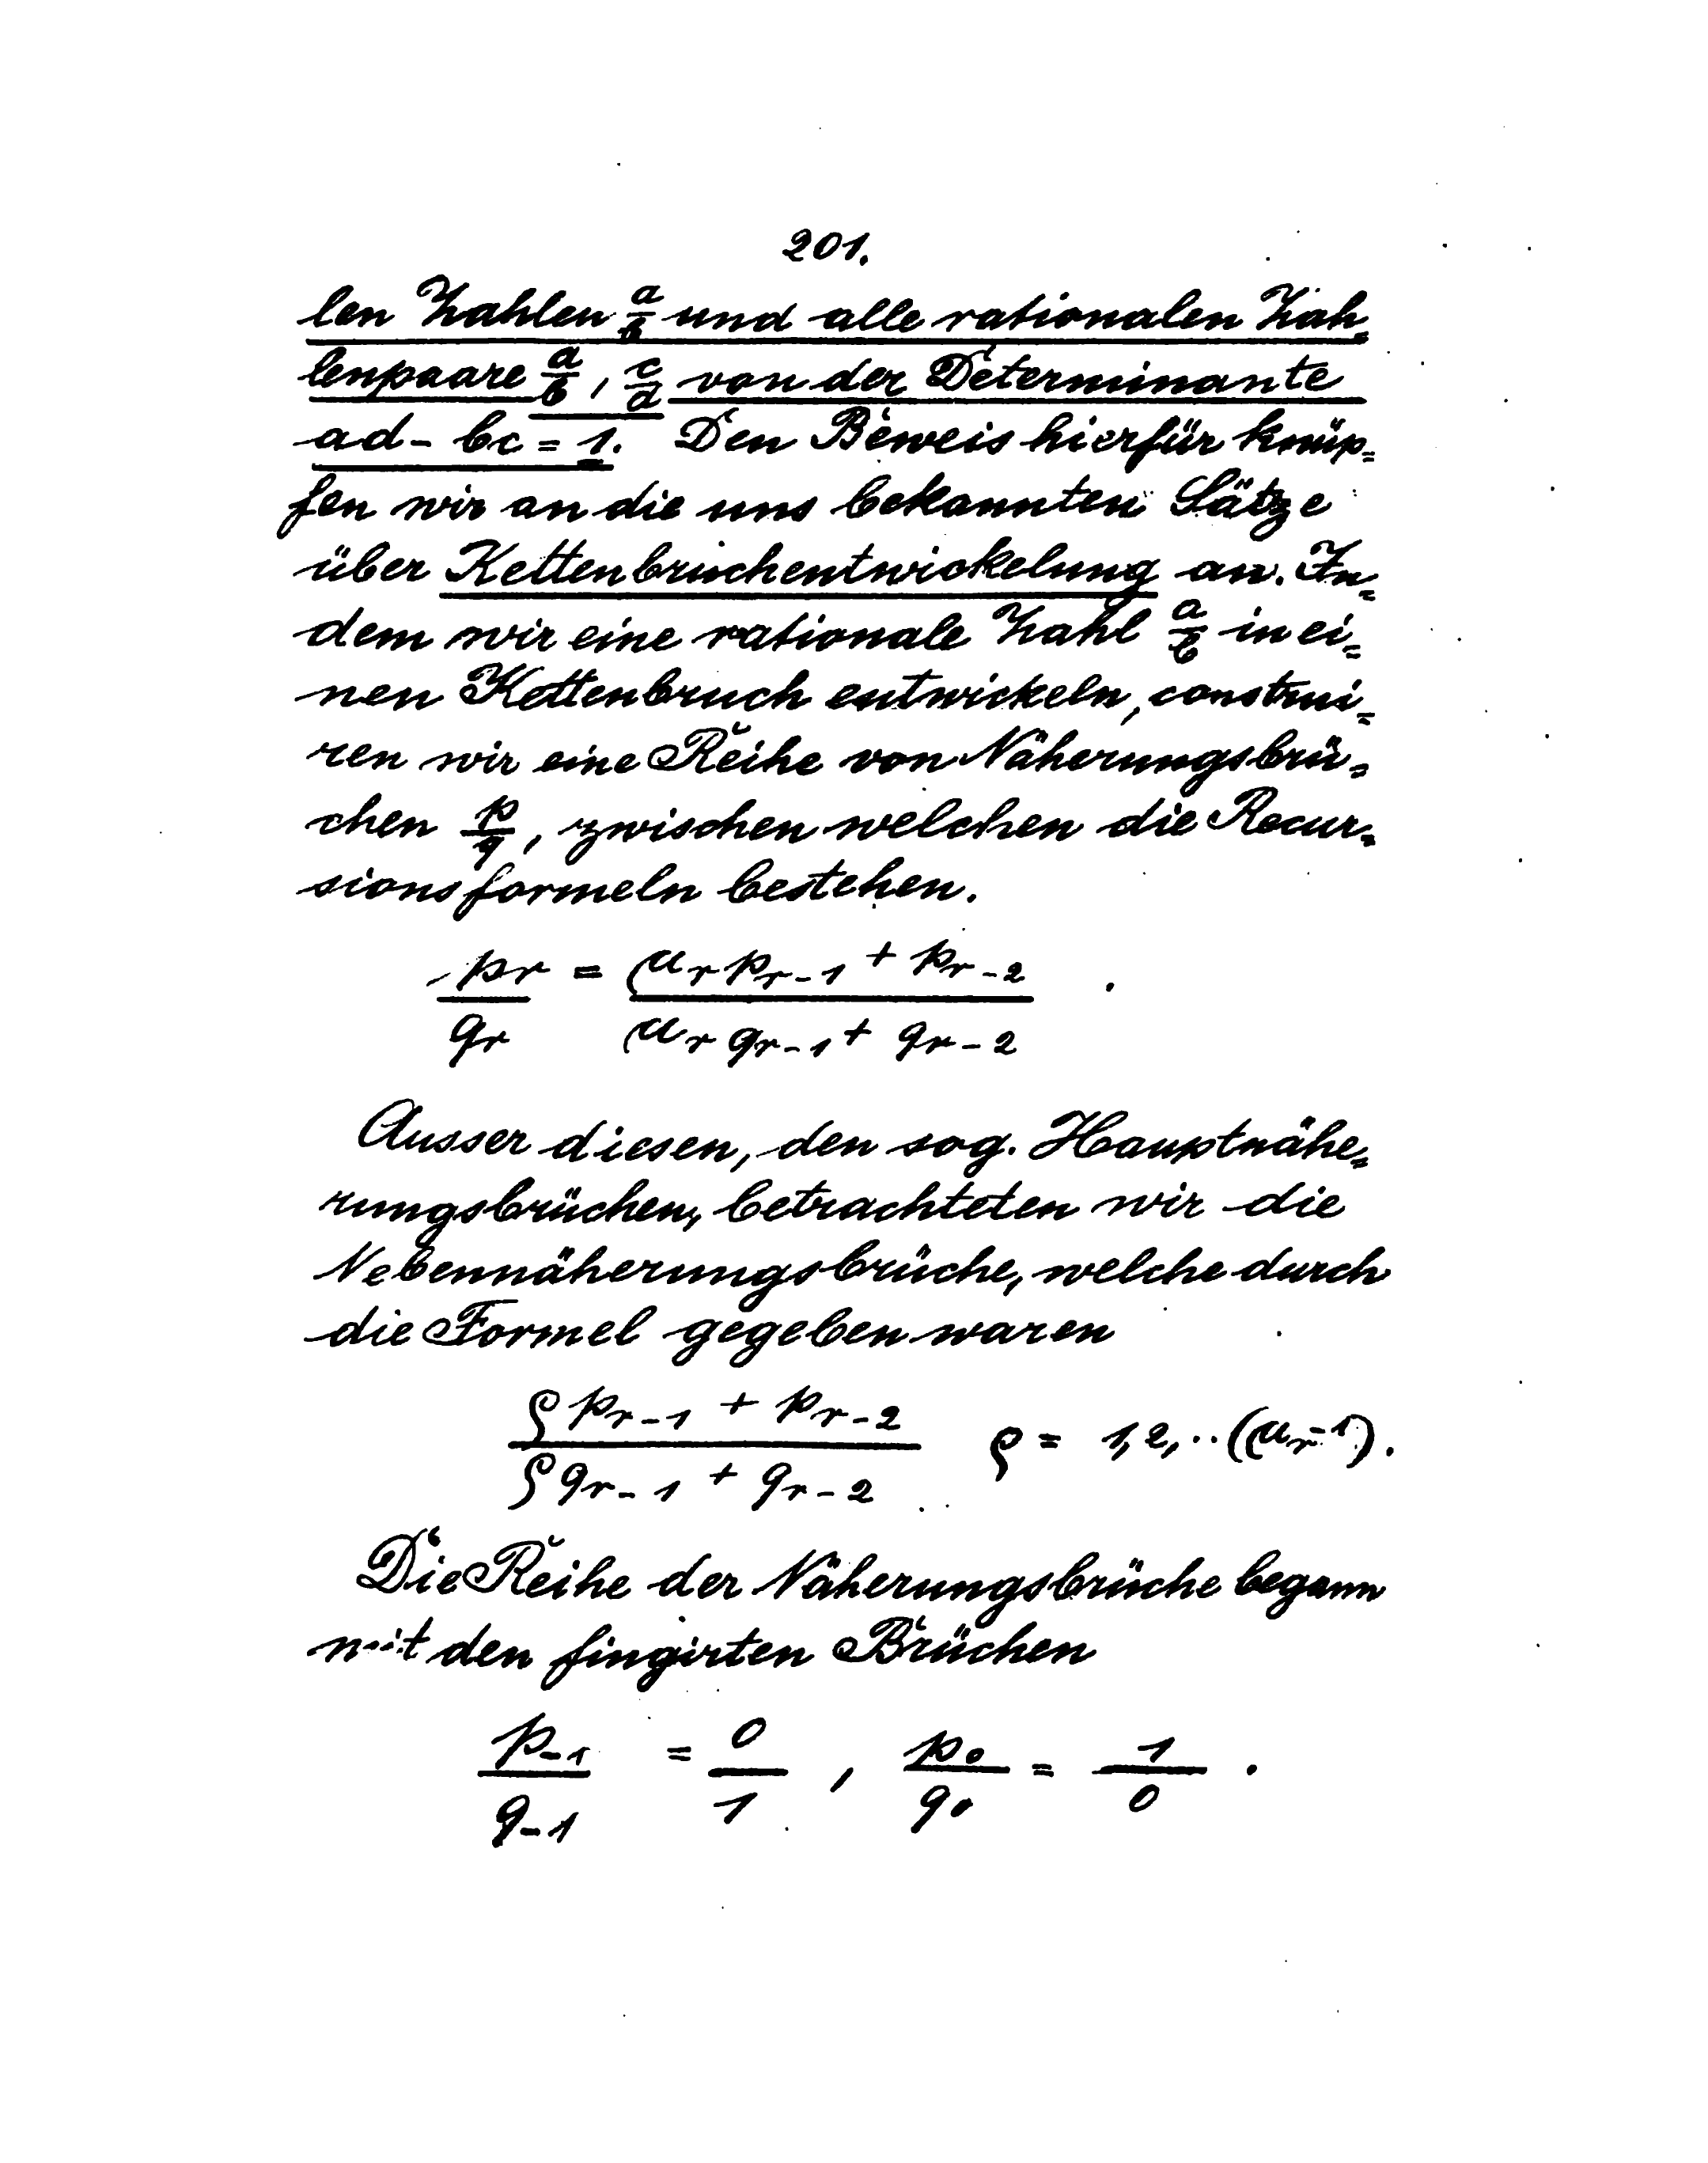 201.
len Zahlen a/b und alle rationalen Zah=
lenpaare a/b, c/d von der Determinante
ad - bc = 1. Den Beweis hierfür knüp=
fen wir an die uns bekannten Sätze
über Kettenbruchentwickelung an. In=
dem wir eine rationale Zahl a/b in ei=
nen Kettenbruch entwickeln, construi=
ren wir eine Reihe von Näherungsbrü=
chen p/q, zwischen welchen die Recur=
sionsformeln bestehen.
p_r/q_r = (a_r p_{r-1} + p_{r-2})/(a_r q_{r-1} + q_{r-2})
Ausser diesen, den sog. Hauptnähe=
rungsbrüchen, betrachteten wir die
Nebennäherungsbrüche, welche durch
die Formel gegeben waren
(ρ p_{r-1} + p_{r-2})/(ρ q_{r-1} + q_{r-2}) ρ = 1, 2, ..(a_r-1).
Die Reihe der Näherungsbrüche begann
mit den fingirten Brüchen
p_{-1}/q_{-1} = 0/1, p_0/q_0 = 1/0.